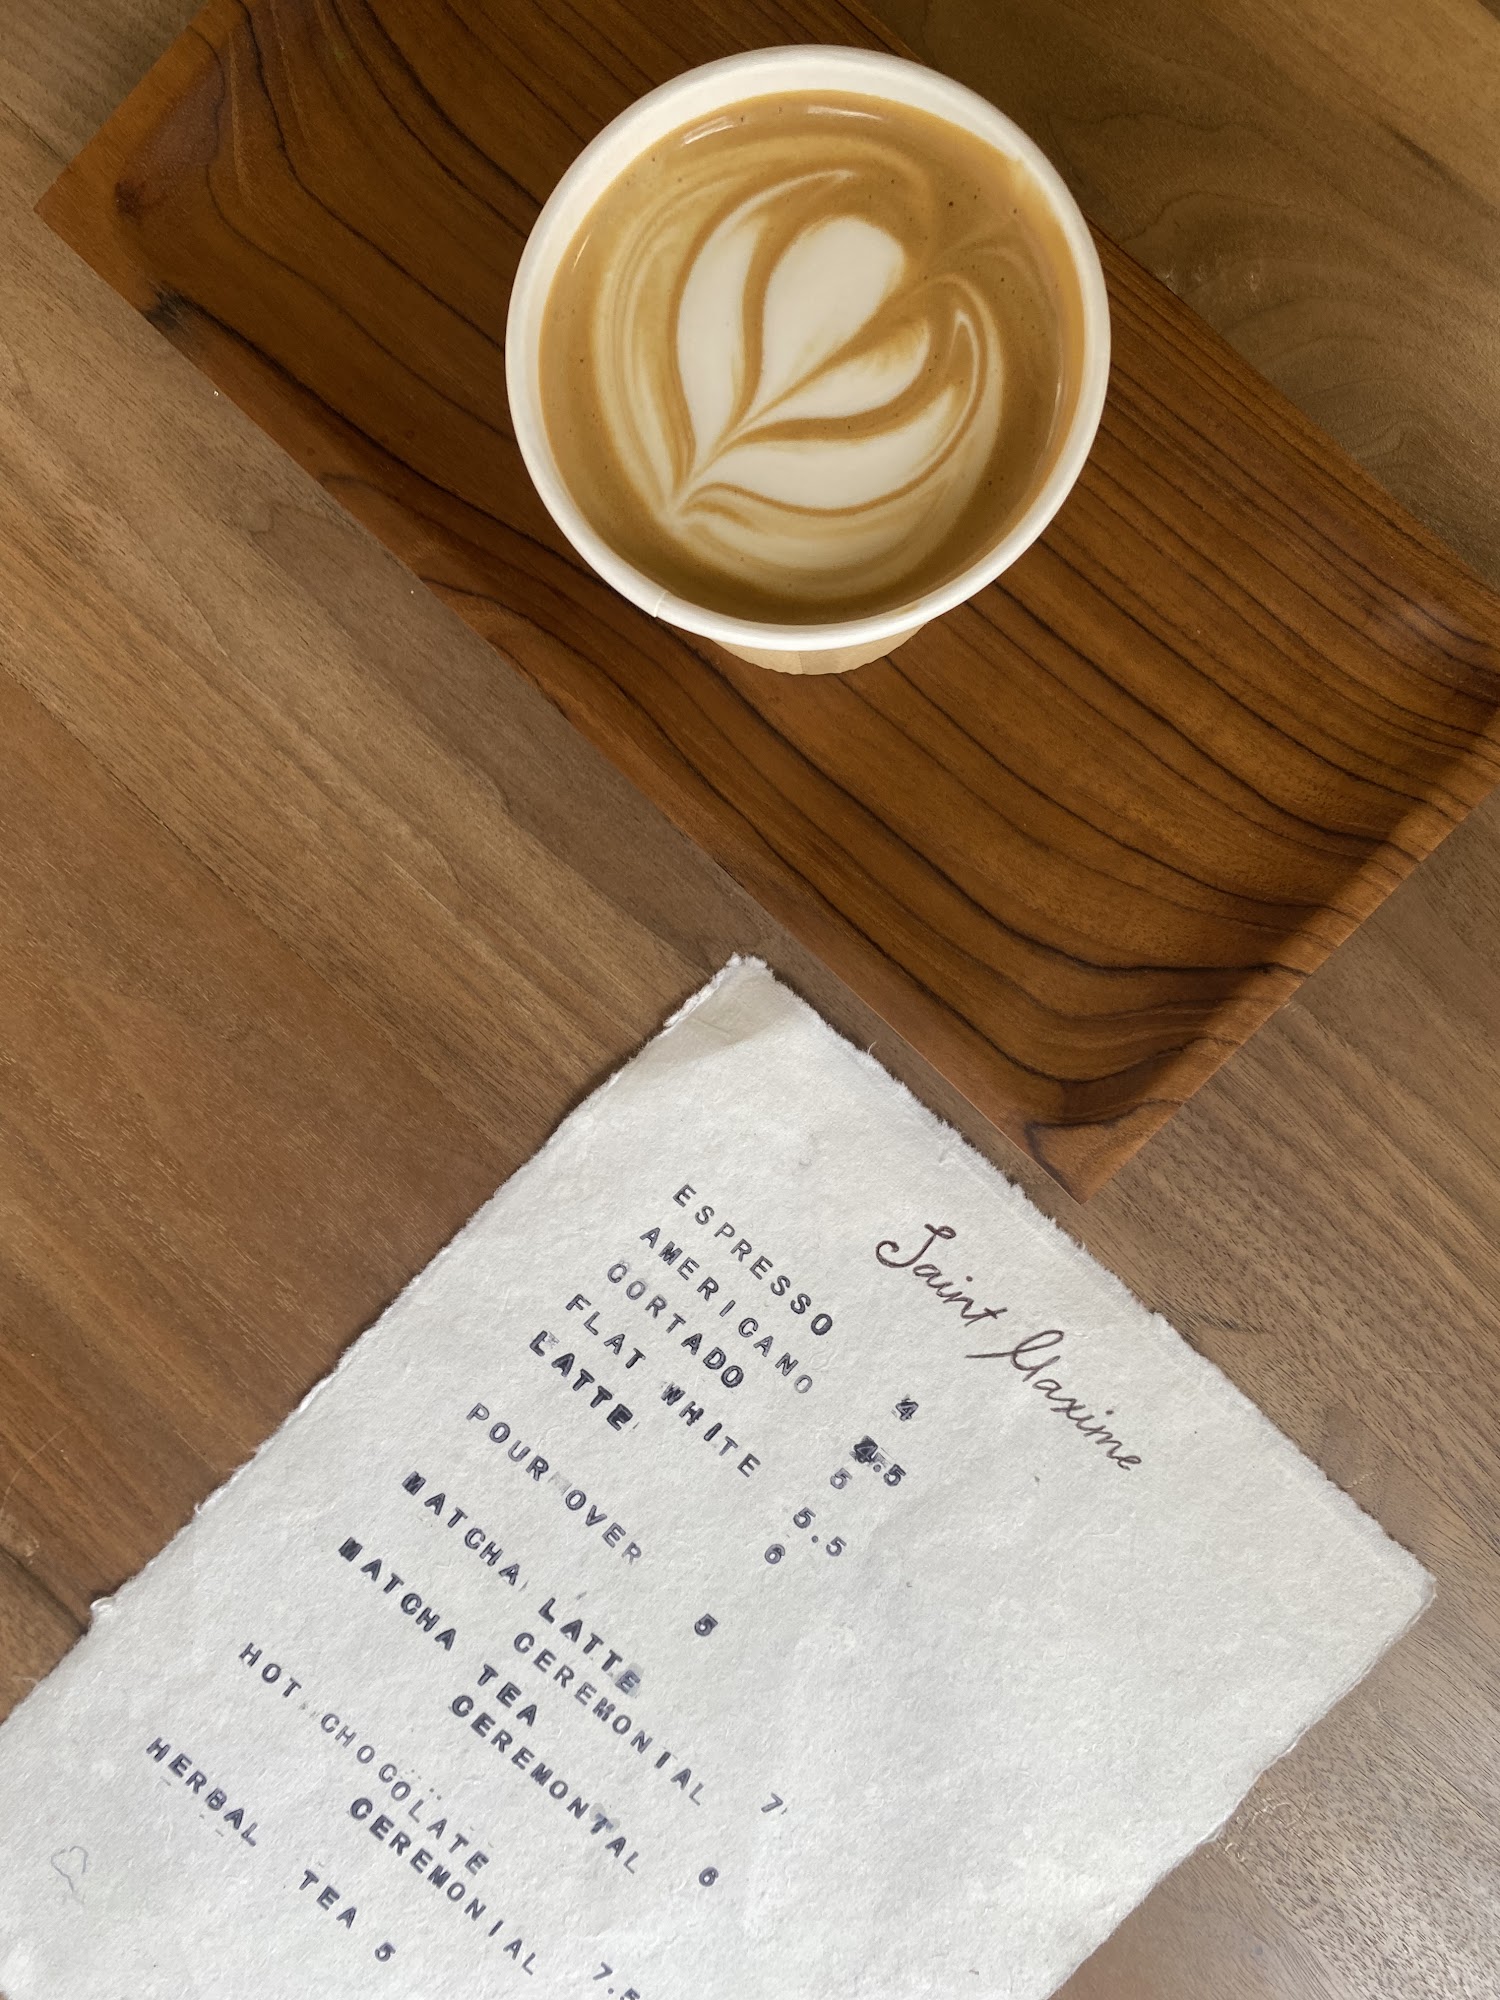 Saint Maxime
ESPRESSO 4
AMERICANO 4.5
CORTADO 5
FLAT WHITE 5.5
LATTE 6
POUR OVER 5
MATCHA LATTE
CEREMONIAL 7
MATCHA TEA
CEREMONTAL 6
HOT CHOCOLATE
CEREMONIAL 7.5
HERBAL TEA 5